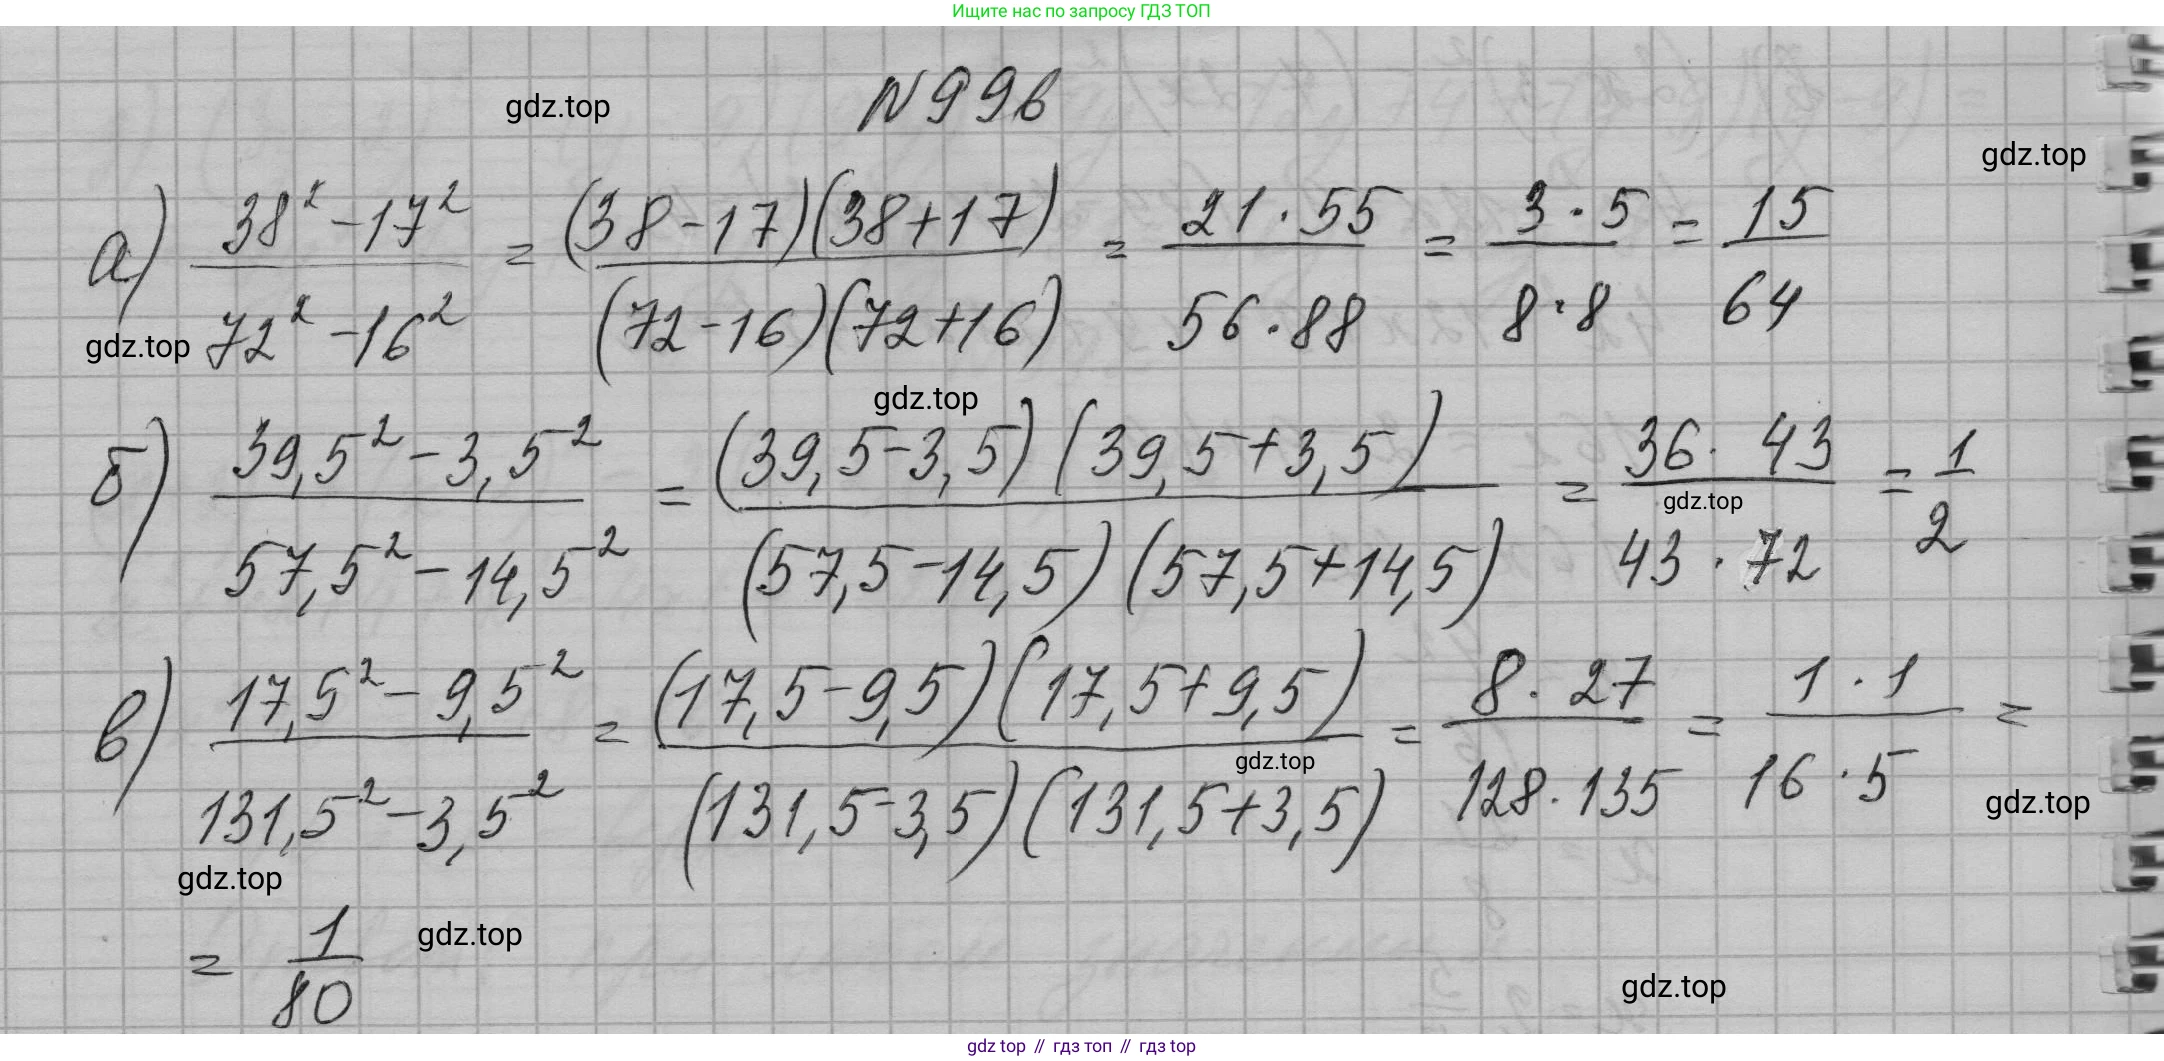 Ищите нас по запросу ГДЗ ТОП
gdz.top
N 996
gdz.top
а) (38² - 17²)/(72² - 16²) = ((38-17)(38+17))/((72-16)(72+16)) = (21·55)/(56·88) = (3·5)/(8·8) = 15/64
gdz.top
gdz.top
б) (39,5² - 3,5²)/(57,5² - 14,5²) = ((39,5-3,5)(39,5+3,5))/((57,5-14,5)(57,5+14,5)) = (36·43)/(43·72) = 1/2
gdz.top
в) (17,5² - 9,5²)/(131,5² - 3,5²) = ((17,5-9,5)(17,5+9,5))/((131,5-3,5)(131,5+3,5)) = (8·27)/(128·135) = (1·1)/(16·5) =
gdz.top
gdz.top
gdz.top
= 1/80
gdz.top
gdz.top
gdz top // гдз топ // гдз top